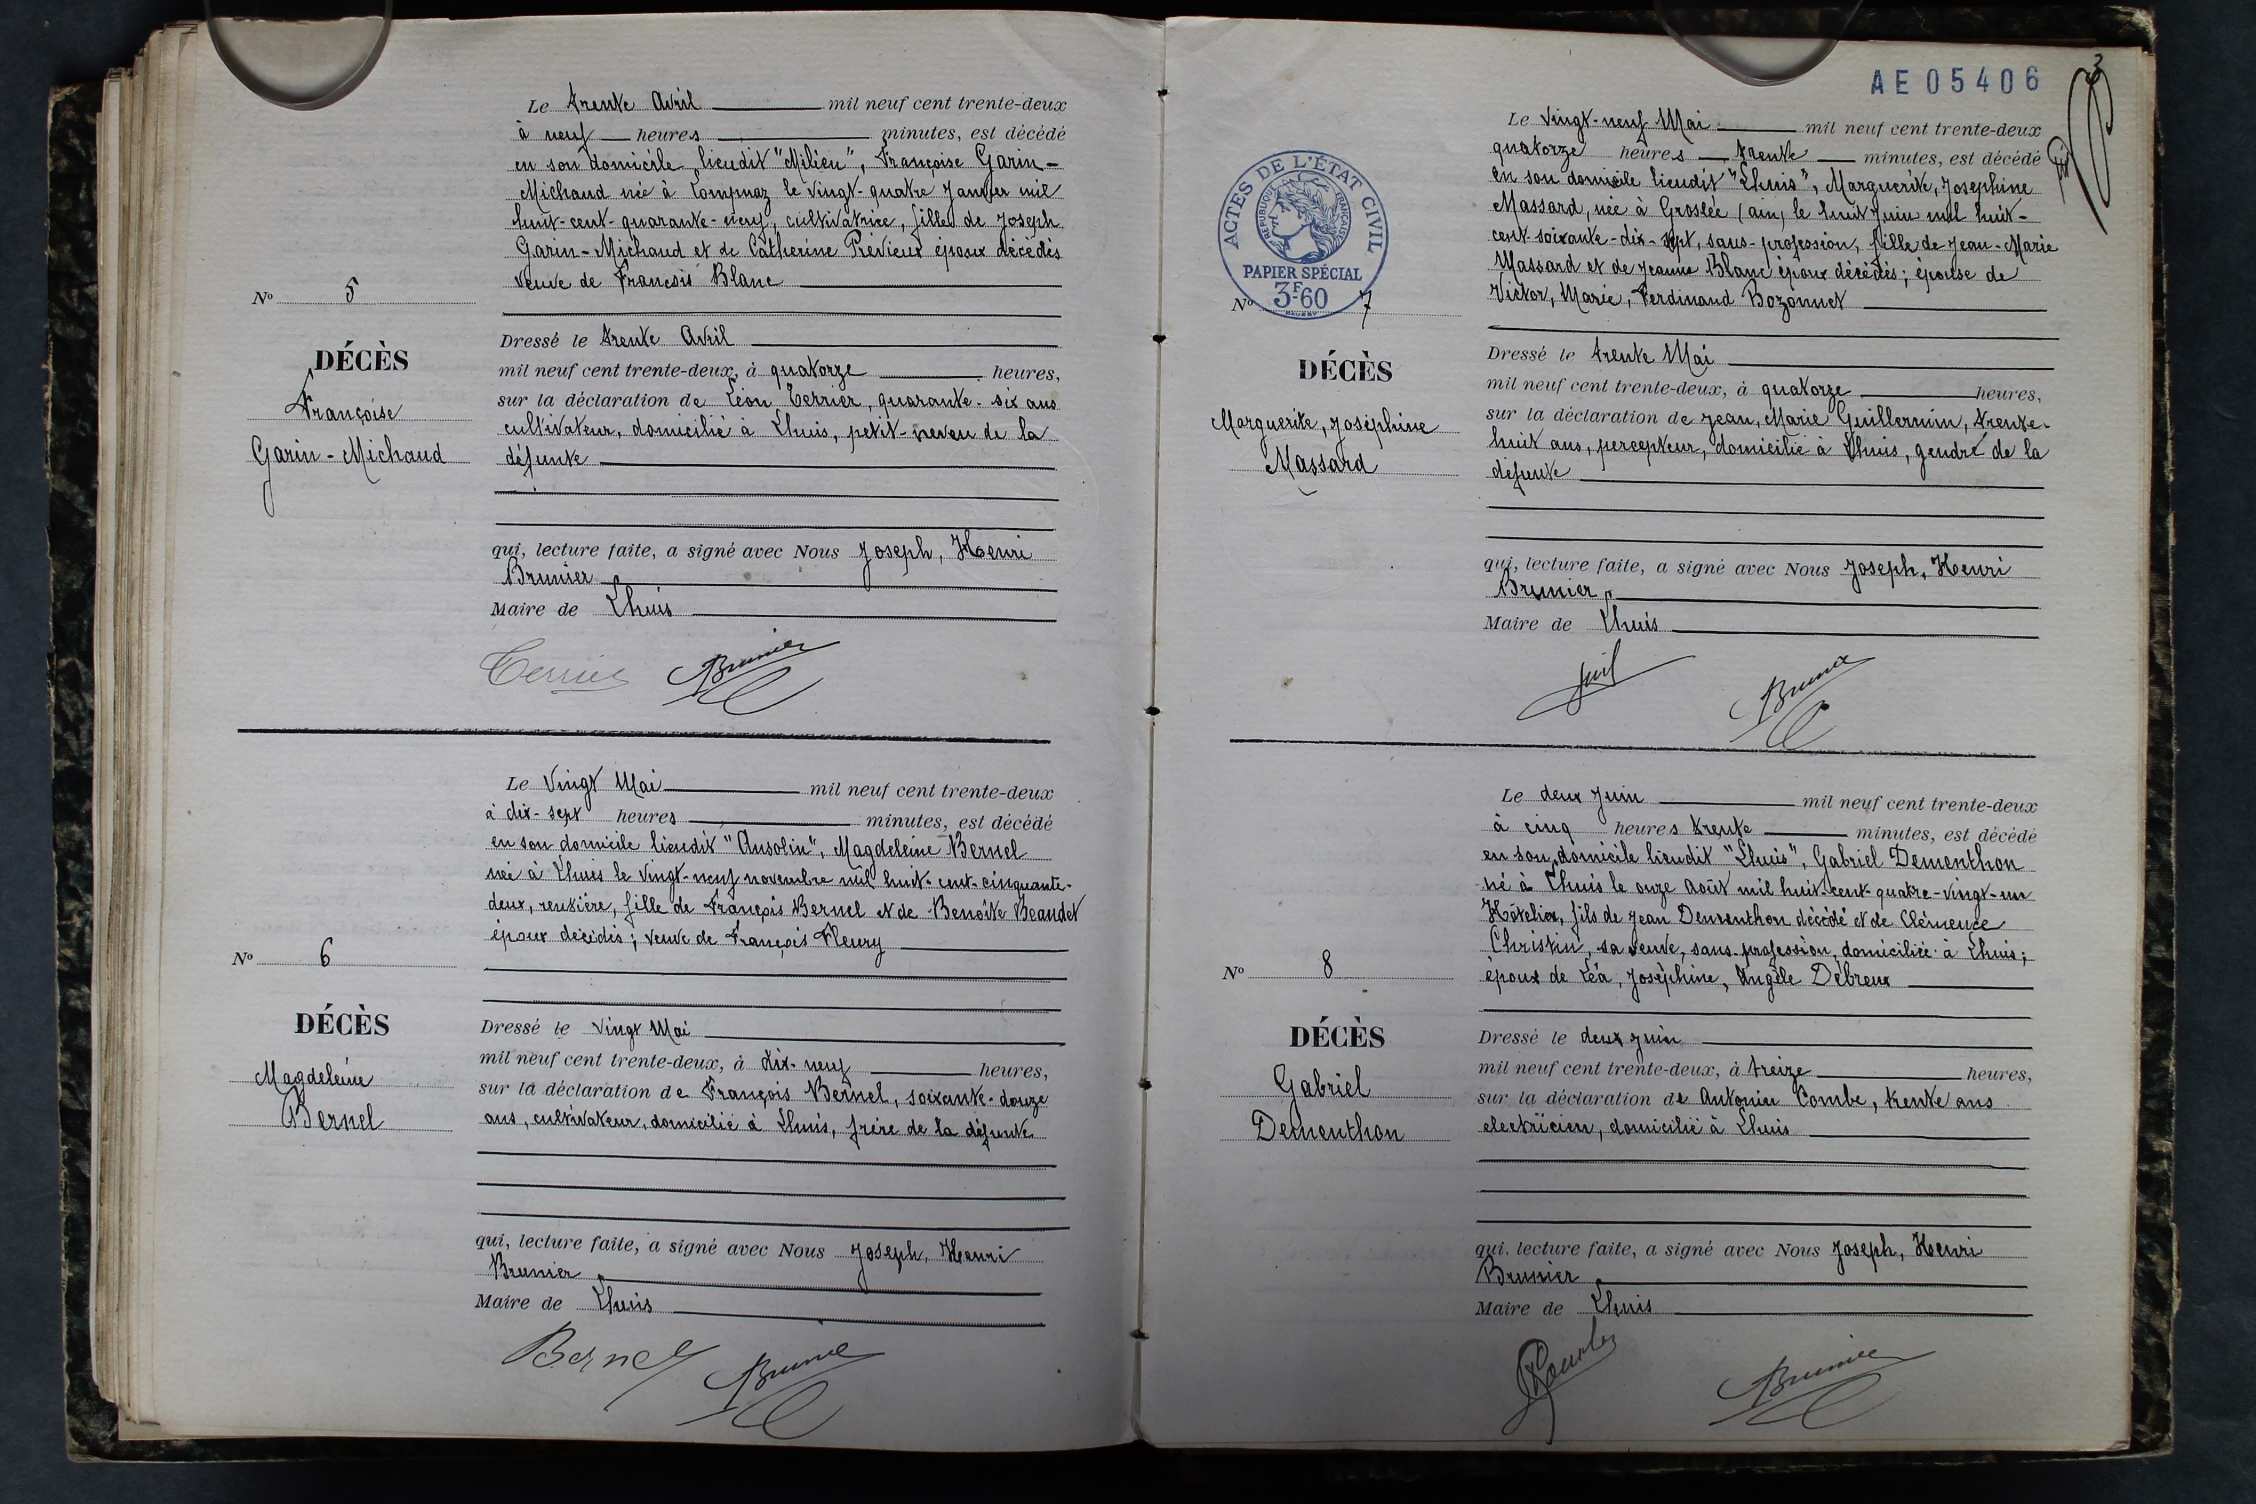 Le trente Avril mil neuf cent trente-deux
à neuf heures minutes, est décédé
en son domicile lieudit "Milieu", Françoise Garin-
Michaud née à Lompnaz le vingt-quatre Janvier mil
huit-cent-quarante-neuf, cultivatrice, fille de Joseph
Garin-Michaud et de Catherine Prévieux époux décédés
veuve de François Blanc
No 5
DÉCÈS
Françoise
Garin-Michaud
Dressé le trente Avril
mil neuf cent trente-deux, à quatorze heures,
sur la déclaration de Léon Terrier, quarante-six ans
cultivateur, domicilié à Lhuis, petit-neveu de la
défunte
qui, lecture faite, a signé avec Nous Joseph, Henri
Brunier
Maire de Lhuis
Terrier Brunier
Le vingt Mai mil neuf cent trente-deux
à dix-sept heures minutes, est décédé
en son domicile lieudit "Ansolin", Magdeleine Bernel
née à Lhuis le vingt-neuf novembre mil huit-cent-cinquante-
deux, rentière, fille de François Bernel et de Benoîte Beaudet
époux décédés; veuve de François Fleury
No 6
DÉCÈS
Magdeleine
Bernel
Dressé le vingt Mai
mil neuf cent trente-deux, à dix-neuf heures,
sur la déclaration de François Bernel, soixante-douze
ans, cultivateur, domicilié à Lhuis, frère de la défunte
qui, lecture faite, a signé avec Nous Joseph, Henri
Brunier
Maire de Lhuis
Bernel Brunier
AE05406
3
Le vingt-neuf Mai mil neuf cent trente-deux
quatorze heures trente minutes, est décédé
en son domicile lieudit "Lhuis", Marguerite, Josephine
Massard, née à Groslée (ain) le huit Juin mil huit-
cent-soixante-dix-sept, sans-profession, fille de Jean-Marie
Massard et de Jeanne Blanc époux décédés; épouse de
Victor, Marie, Ferdinand Bozonnet
ACTES DE L'ÉTAT CIVIL
RÉPUBLIQUE FRANÇAISE
PAPIER SPÉCIAL
3F60
No 7
DÉCÈS
Marguerite, Joséphine
Massard
Dressé le trente Mai
mil neuf cent trente-deux, à quatorze heures,
sur la déclaration de Jean, Marie Guillermin, trente-
huit ans, percepteur, domicilié à Lhuis, gendre de la
défunte
qui, lecture faite, a signé avec Nous Joseph, Henri
Brunier
Maire de Lhuis
Brunier
Le deux Juin mil neuf cent trente-deux
à cinq heures trente minutes, est décédé
en son domicile lieudit "Lhuis", Gabriel Dementhon
né à Lhuis le onze Août mil huit-cent-quatre-vingt-un
Hôtelier, fils de Jean Dementhon décédé et de Clémence
Christin, sa veuve, sans-profession, domiciliée à Lhuis;
époux de Léa, Joséphine, Angèle Débreux
No 8
DÉCÈS
Gabriel
Dementhon
Dressé le deux Juin
mil neuf cent trente-deux, à treize heures,
sur la déclaration de Antonin Combe, trente ans
electricien, domicilié à Lhuis
qui, lecture faite, a signé avec Nous Joseph, Henri
Brunier
Maire de Lhuis
Combe Brunier